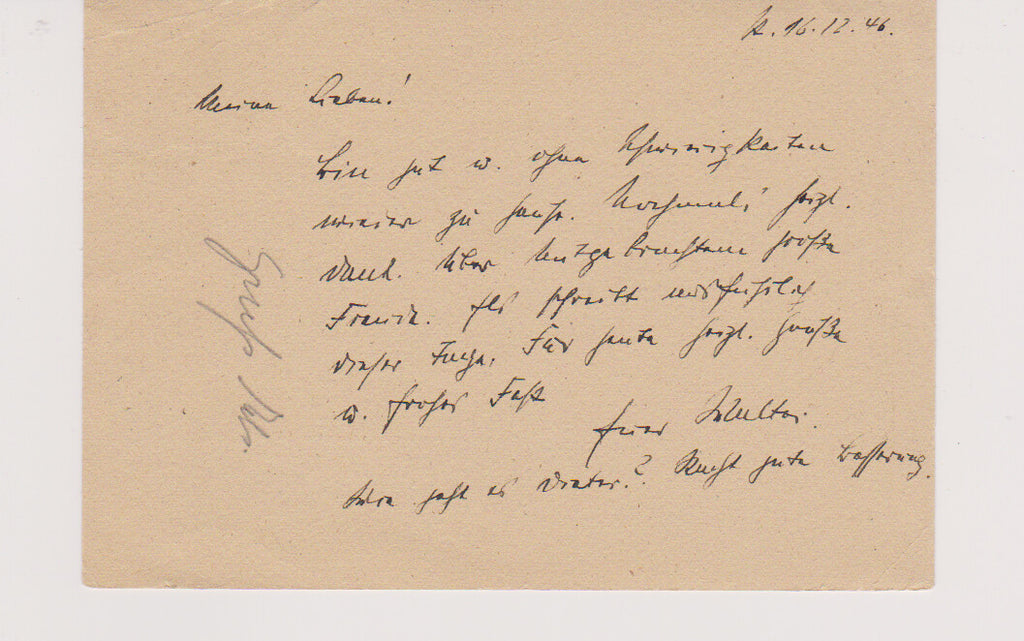 A. 16.12.46.
Meine Lieben!
Bin gut u. ohne Schwierigkeiten
wieder zu Hause. Nochmals herzl.
Dank. Über Mitgebrachtem große
Freude. Ils schreibt ausführlich
dieser Tage. Für heute herzl. Grüße
u. frohes Fest
Euer Walter.
Wie geht es Dieter? Recht gute Besserung.
Gruß